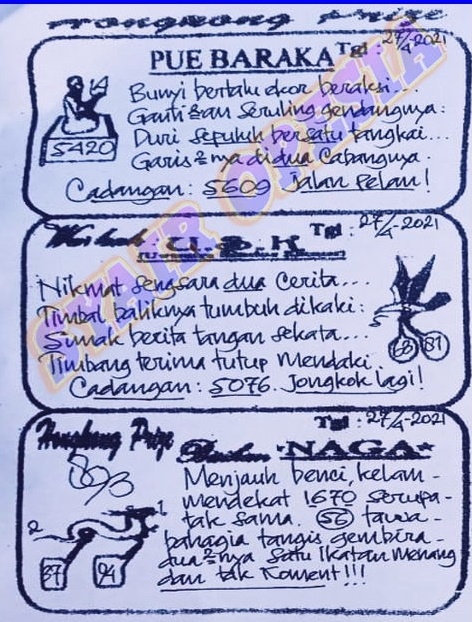 Hongkong Prize
PUE BARAKA Tgl : 27/4-2021
Bunyi bertalu ekor beraksi...
Ganti an Seruling gendangnya:
Duri Sepuluh bersatu tangkai...
Garis²nya didua Cabangnya.
5420
Cadangan: 5609 Jalan Pelan!
Tgl : 27/4-2021
Nikmat Sengsara dua Cerita...
Timbal baliknya tumbuh dikaki:
Simak berita tangan sekata...
Timbang terima tutup Mendaki.
63 81
Cadangan: 5076. Jongkok lagi!
Tgl : 27/4-2021
Hongkong Prize
NAGA
Menjauh benci, kelam -
mendekat 1670 Serupa -
tak Sama. 56 tawa -
bahagia tangis gembira -
dua²nya Satu Ikatan Menang
dan tak Koment!!!
SYAIR OPESIA